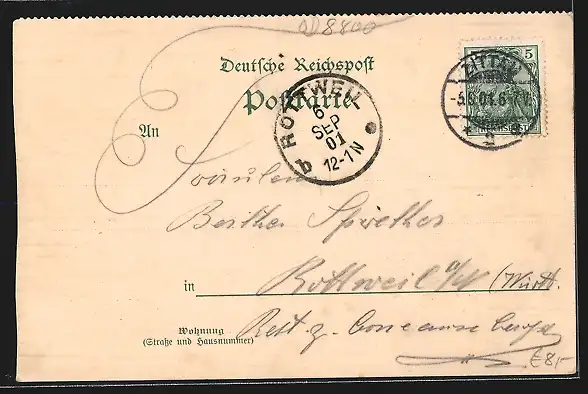 8800
Deutsche Reichspost
Postkarte
5
ZITTAU
-5.9.01.6-7V.
REICHSPOST
ROTTWEIL
6
SEP
01
12-1N
b
An
Fräulein
Berthe
in Rottweil a/N (Württ.
Wohnung
(Straße und Hausnummer)
Rest. z.
€8,-